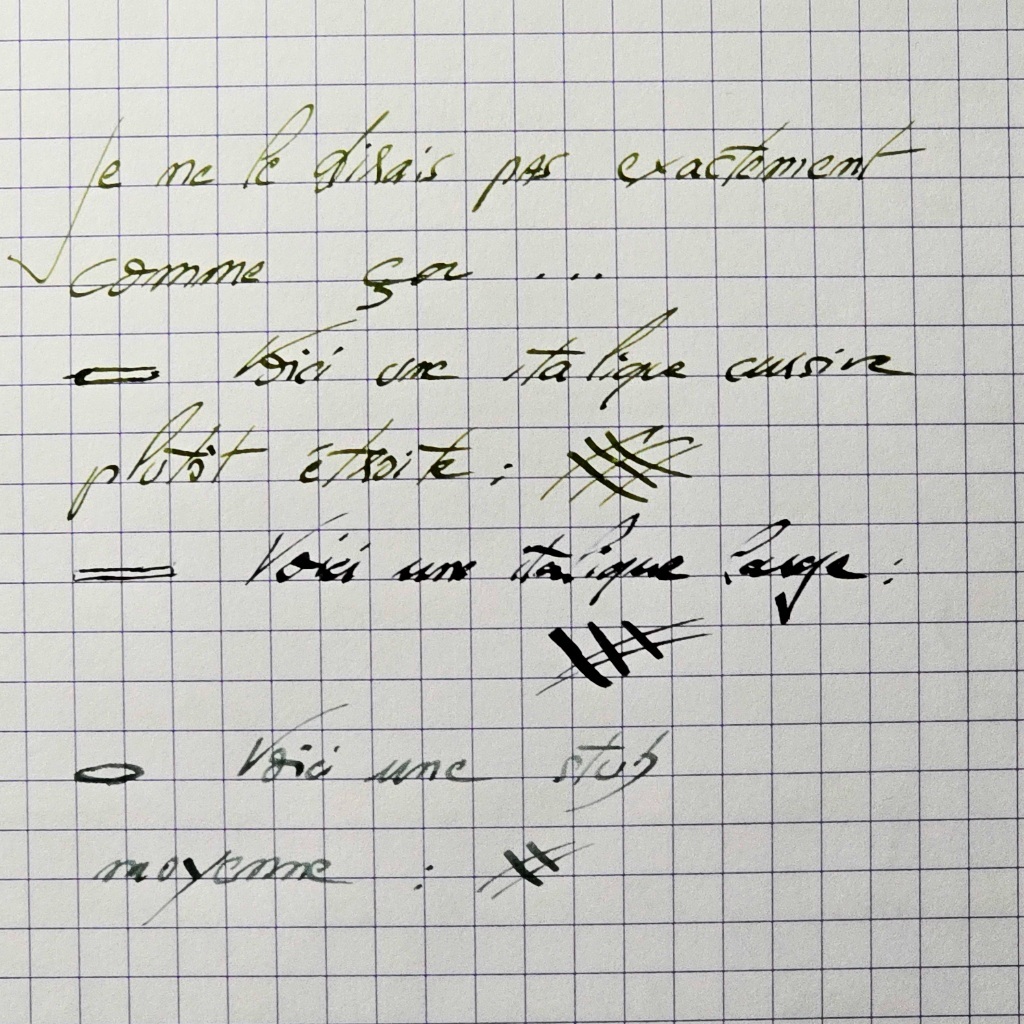 Je ne le disais pas exactement
comme ça ...
Voici une italique cursive
plutôt étroite :
Voici une italique large :
Voici une stub
moyenne :